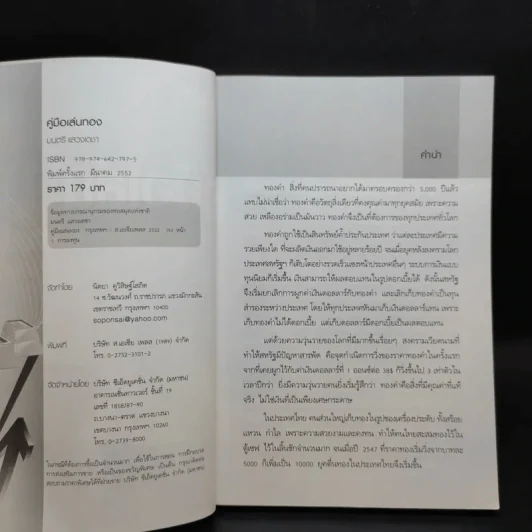 คู่มือเล่นทอง
มนตรี แสวงเดชา
ISBN 978-974-642-797-5
พิมพ์ครั้งแรก มีนาคม 2552
ราคา 179 บาท
ข้อมูลทางบรรณานุกรมของหอสมุดแห่งชาติ
มนตรี
คู่มือเล่นทอง. กรุงเทพฯ : 2552
จัดทำโดย นิตยา
14 ซ.วัฒนวงศ์ ถ.ราชปรารภ แขวงมักกะสัน
เขตราชเทวี กรุงเทพฯ 10400
soponsai@yahoo.com
พิมพ์ที่ บริษัท ส.เอเซีย เพลส (1989) จำกัด
โทร. 0-2732-3101-2
จัดจำหน่ายโดย บริษัท ซีเอ็ดยูเคชั่น จำกัด (มหาชน)
อาคารเนชั่นทาวเวอร์ ชั้นที่ 19
เลขที่ 1858/87-90
ถ.บางนา-ตราด แขวงบางนา
เขตบางนา กรุงเทพฯ 10260
โทร. 0-2739-8000
คำนำ
ทองคำ สิ่งที่คนปรารถนาอยากได้มาครอบครองกว่า 5,000 ปีแล้ว
แทบไม่น่าเชื่อว่า ทองคำคือวัตถุสิ่งเดียวที่คงคุณค่ามาทุกยุคสมัย เพราะความ
สวย เหลืองอร่ามเป็นมันวาว ทองคำจึงเป็นที่ต้องการของทุกประเทศทั่วโลก
ทองคำถูกใช้เป็นสินทรัพย์ค้ำประกันประเทศ ว่าแต่ละประเทศมีความ
รวยเพียงใด ที่จะผลิตเงินออกมาใช้อยู่หลายร้อยปี จนเมื่อยุคหลังสงครามโลก
ประเทศสหรัฐฯ ก็เติบโตอย่างรวดเร็วแซงหน้าประเทศอื่นๆ ระบบการเงินแบบ
ทุนนิยมก็เริ่มขึ้น เงินสามารถให้ผลตอบแทนในรูปดอกเบี้ยได้ ดังนั้นสหรัฐ
จึงเริ่มยกเลิกการผูกค่าเงินดอลลาร์กับทองคำ และเลิกเก็บทองคำเป็นทุน
สำรองระหว่างประเทศ โดยให้ทุกประเทศหันมาเก็บเงินดอลลาร์แทน เพราะ
เก็บทองคำไม่ได้ดอกเบี้ย แต่เก็บดอลลาร์มีดอกเบี้ยเป็นผลตอบแทน
แต่ด้วยความวุ่นวายของโลกที่มีมากขึ้นเรื่อยๆ สงครามเวียดนามที่
ทำให้สหรัฐมีปัญหาสารพัด คือจุดกำเนิดการวิ่งของราคาทองคำในครั้งแรก
จากที่เคยผูกไว้กับค่าเงินดอลลาร์ที่ 1 ออนซ์ต่อ 35$ ก็วิ่งขึ้นไป 3 เท่าตัวใน
เวลาปีกว่า ยิ่งมีความวุ่นวายคนยิ่งเริ่มรู้สึกว่า ทองคำคือสิ่งที่มีคุณค่าที่แท้
จริง ไม่ใช่เงินที่เป็นเพียงเศษกระดาษ
ในประเทศไทย คนส่วนใหญ่เก็บทองในรูปของเครื่องประดับ ทั้งสร้อย
แหวน กำไล เพราะความสวยงามและคงทน ทำให้คนไทยสะสมทองไว้ใน
ตู้เซฟ ไว้ในลิ้นชักจำนวนมาก จนเมื่อปี 2547 ที่ราคาทองเริ่มวิ่งจากบาทละ
5000 ก็เพิ่มเป็น 10000 ยุคตื่นทองในประเทศไทยจึงเริ่มขึ้น